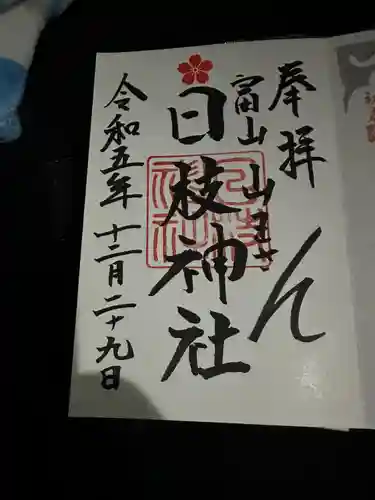 奉拝
富山山王さん
日枝神社
令和五年十二月二十九日